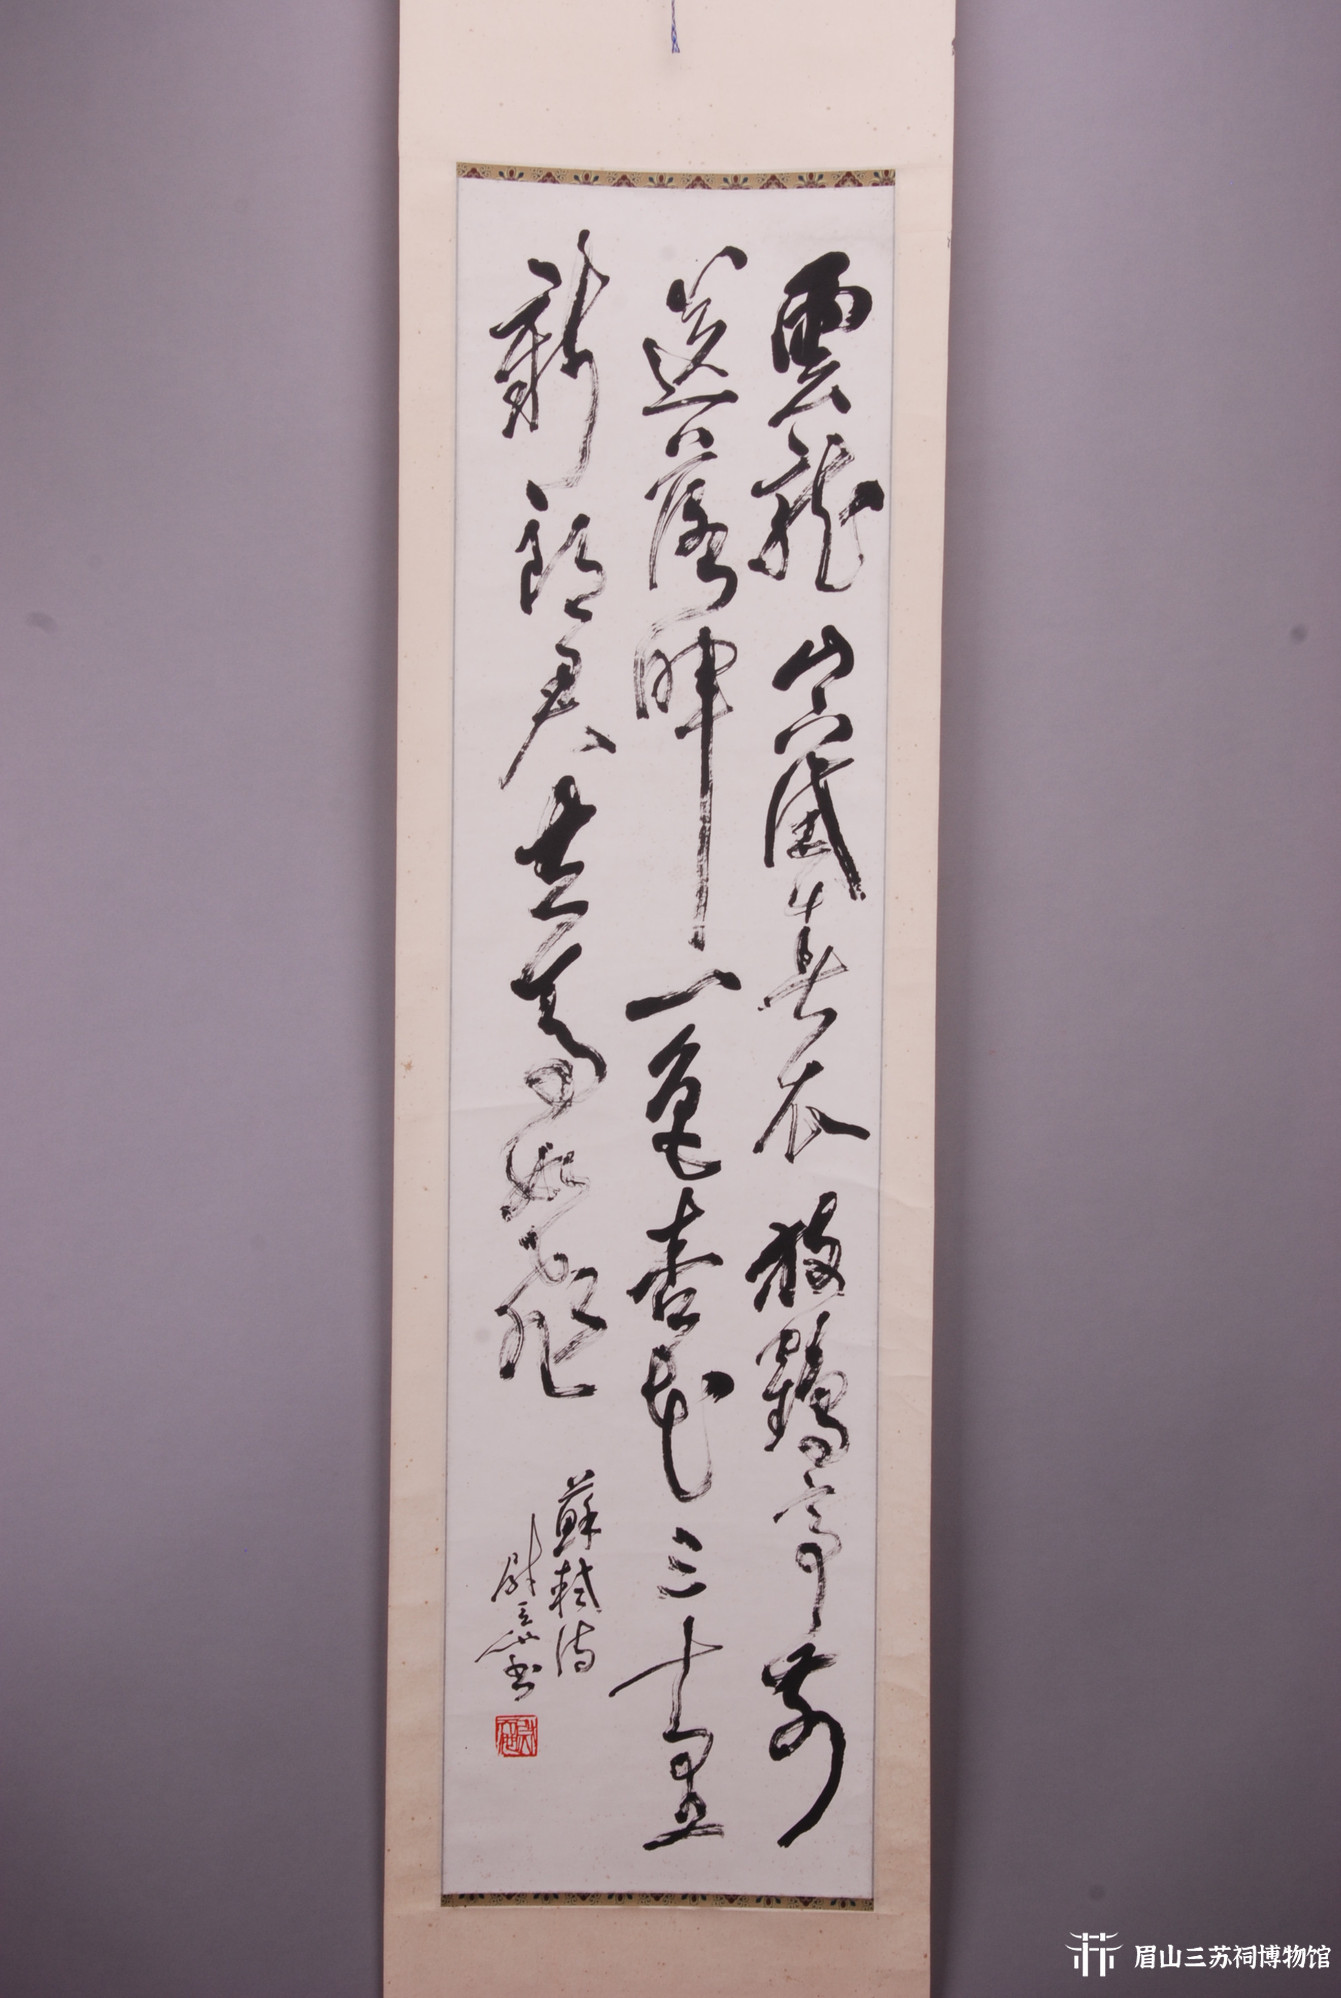 雲龍山下試春衣放鶴亭前
送落暉一色杏花三十里
新郎君去馬如飛
蘇軾詩
尉天池書
眉山三苏祠博物馆